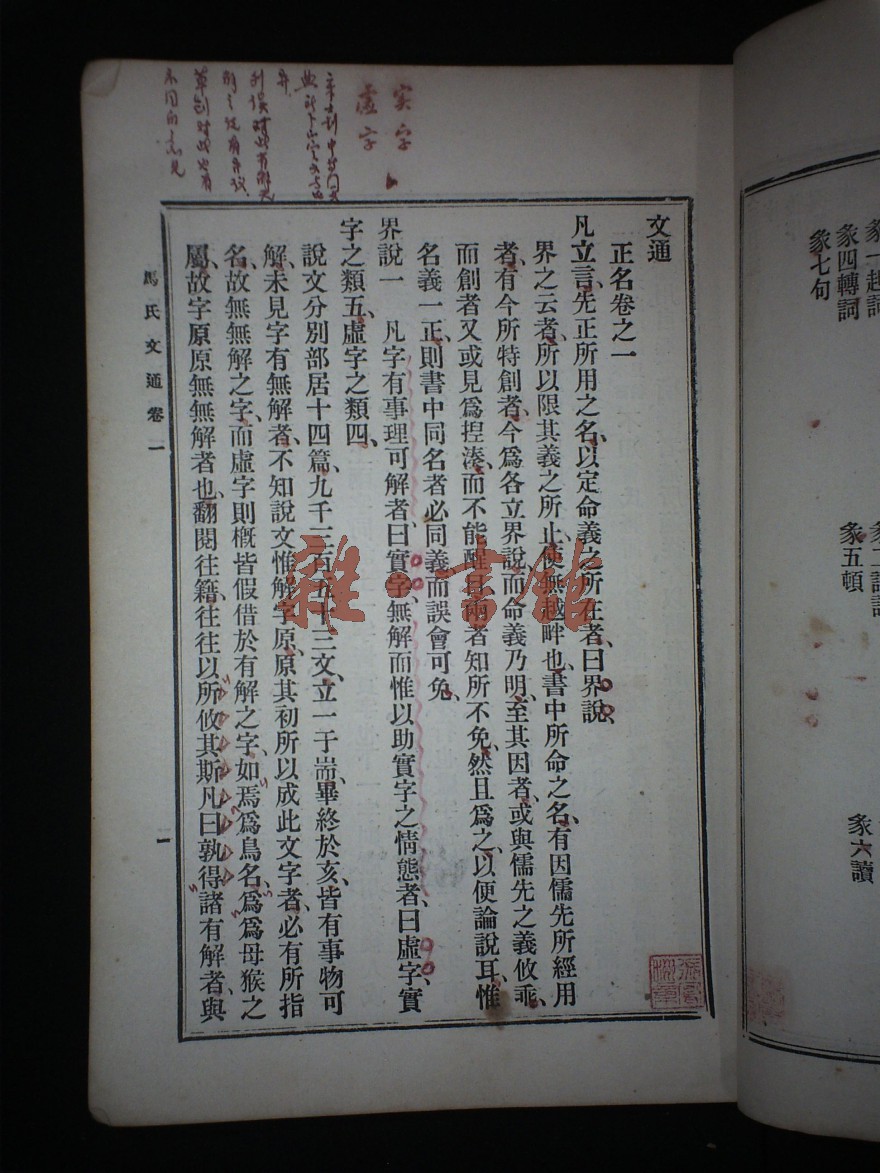 象一起詞
象二語詞
象四轉詞
象五頓
象六讀
象七句
实字
虛字
文通
正名卷之一
凡立言、先正所用之名、以定命義之所在者、曰界說、
界之云者、所以限其義之所止、使無越畔也、書中所命之名、有因儒先所經用
者、有今所特創者、今爲各立界說、而命義乃明、至其因者、或與儒先之義攸乖、
而創者又或見爲捏湊、而不能醒目、兩者知所不免、然且爲之、以便論說耳、惟
名義一正、則書中同名者必同義、而誤會可免、
界說一　凡字有事理可解者、曰實字、無解而惟以助實字之情態者、曰虛字、實
字之類五、虛字之類四、
說文分別部居十四篇、九千三百五十三文、立一于耑、畢終於亥、皆有事物可
解、未見字有無解者、不知說文惟解字原、原其初所以成此文字者、必有所指
名、故無無解之字、而虛字則槪皆假借於有解之字、如焉爲鳥名、爲爲母猴之
屬、故字原原無無解者也、翻閱往籍、往往以所攸其斯凡曰孰得諸有解者、與
馬氏文通卷一
一
雜·書館